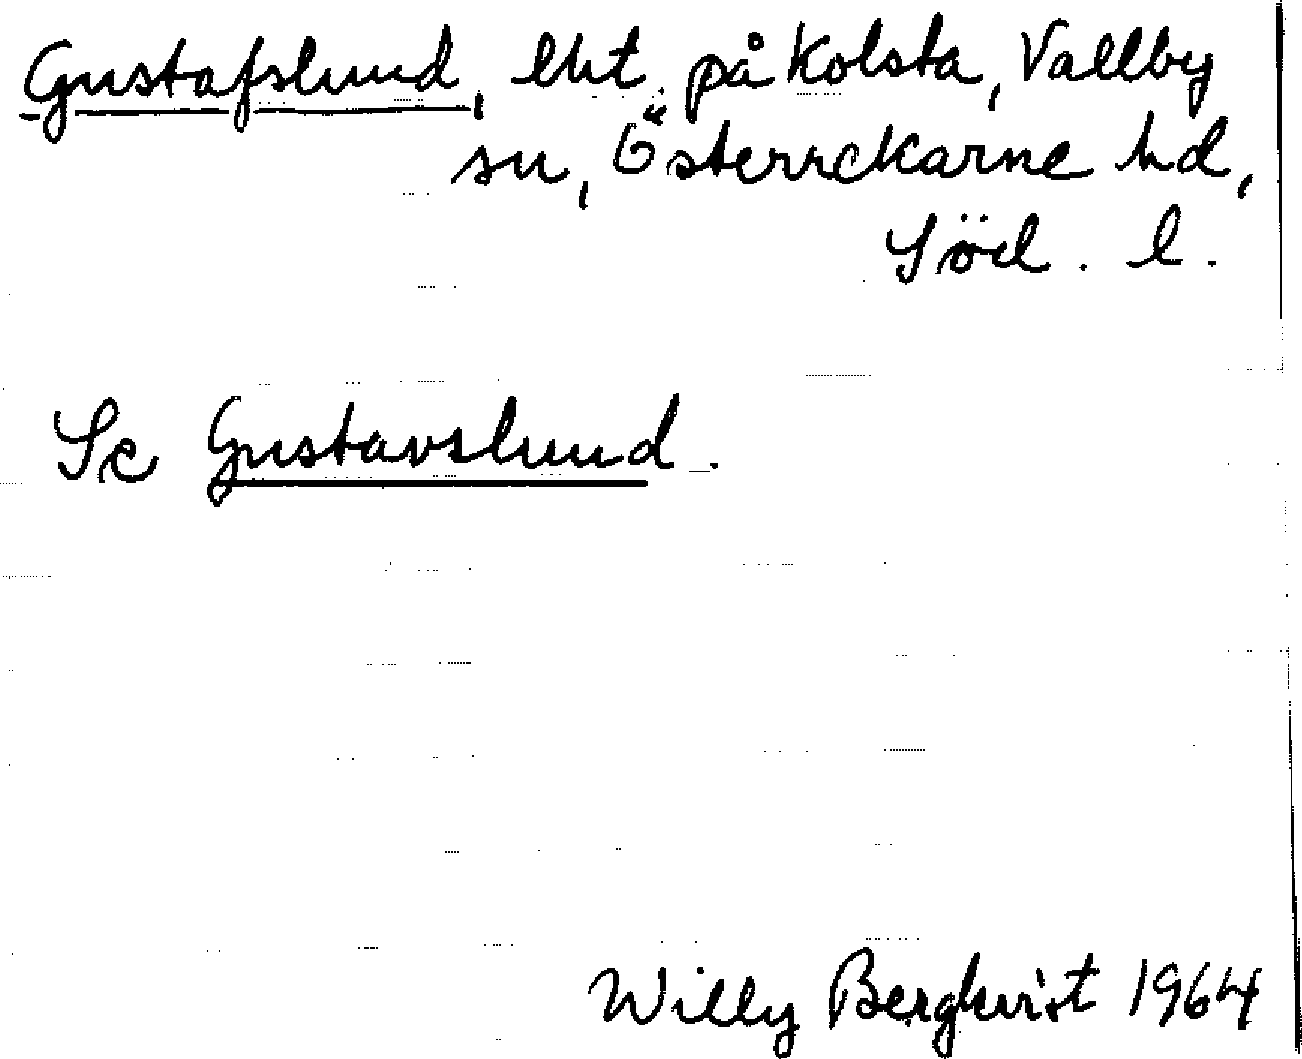 Gustafslund, lht på Kolsta, Vallby
sn, Österrekarne hd,
Söd. l.
Se Gustavslund.
Willy Bergkvist 1964